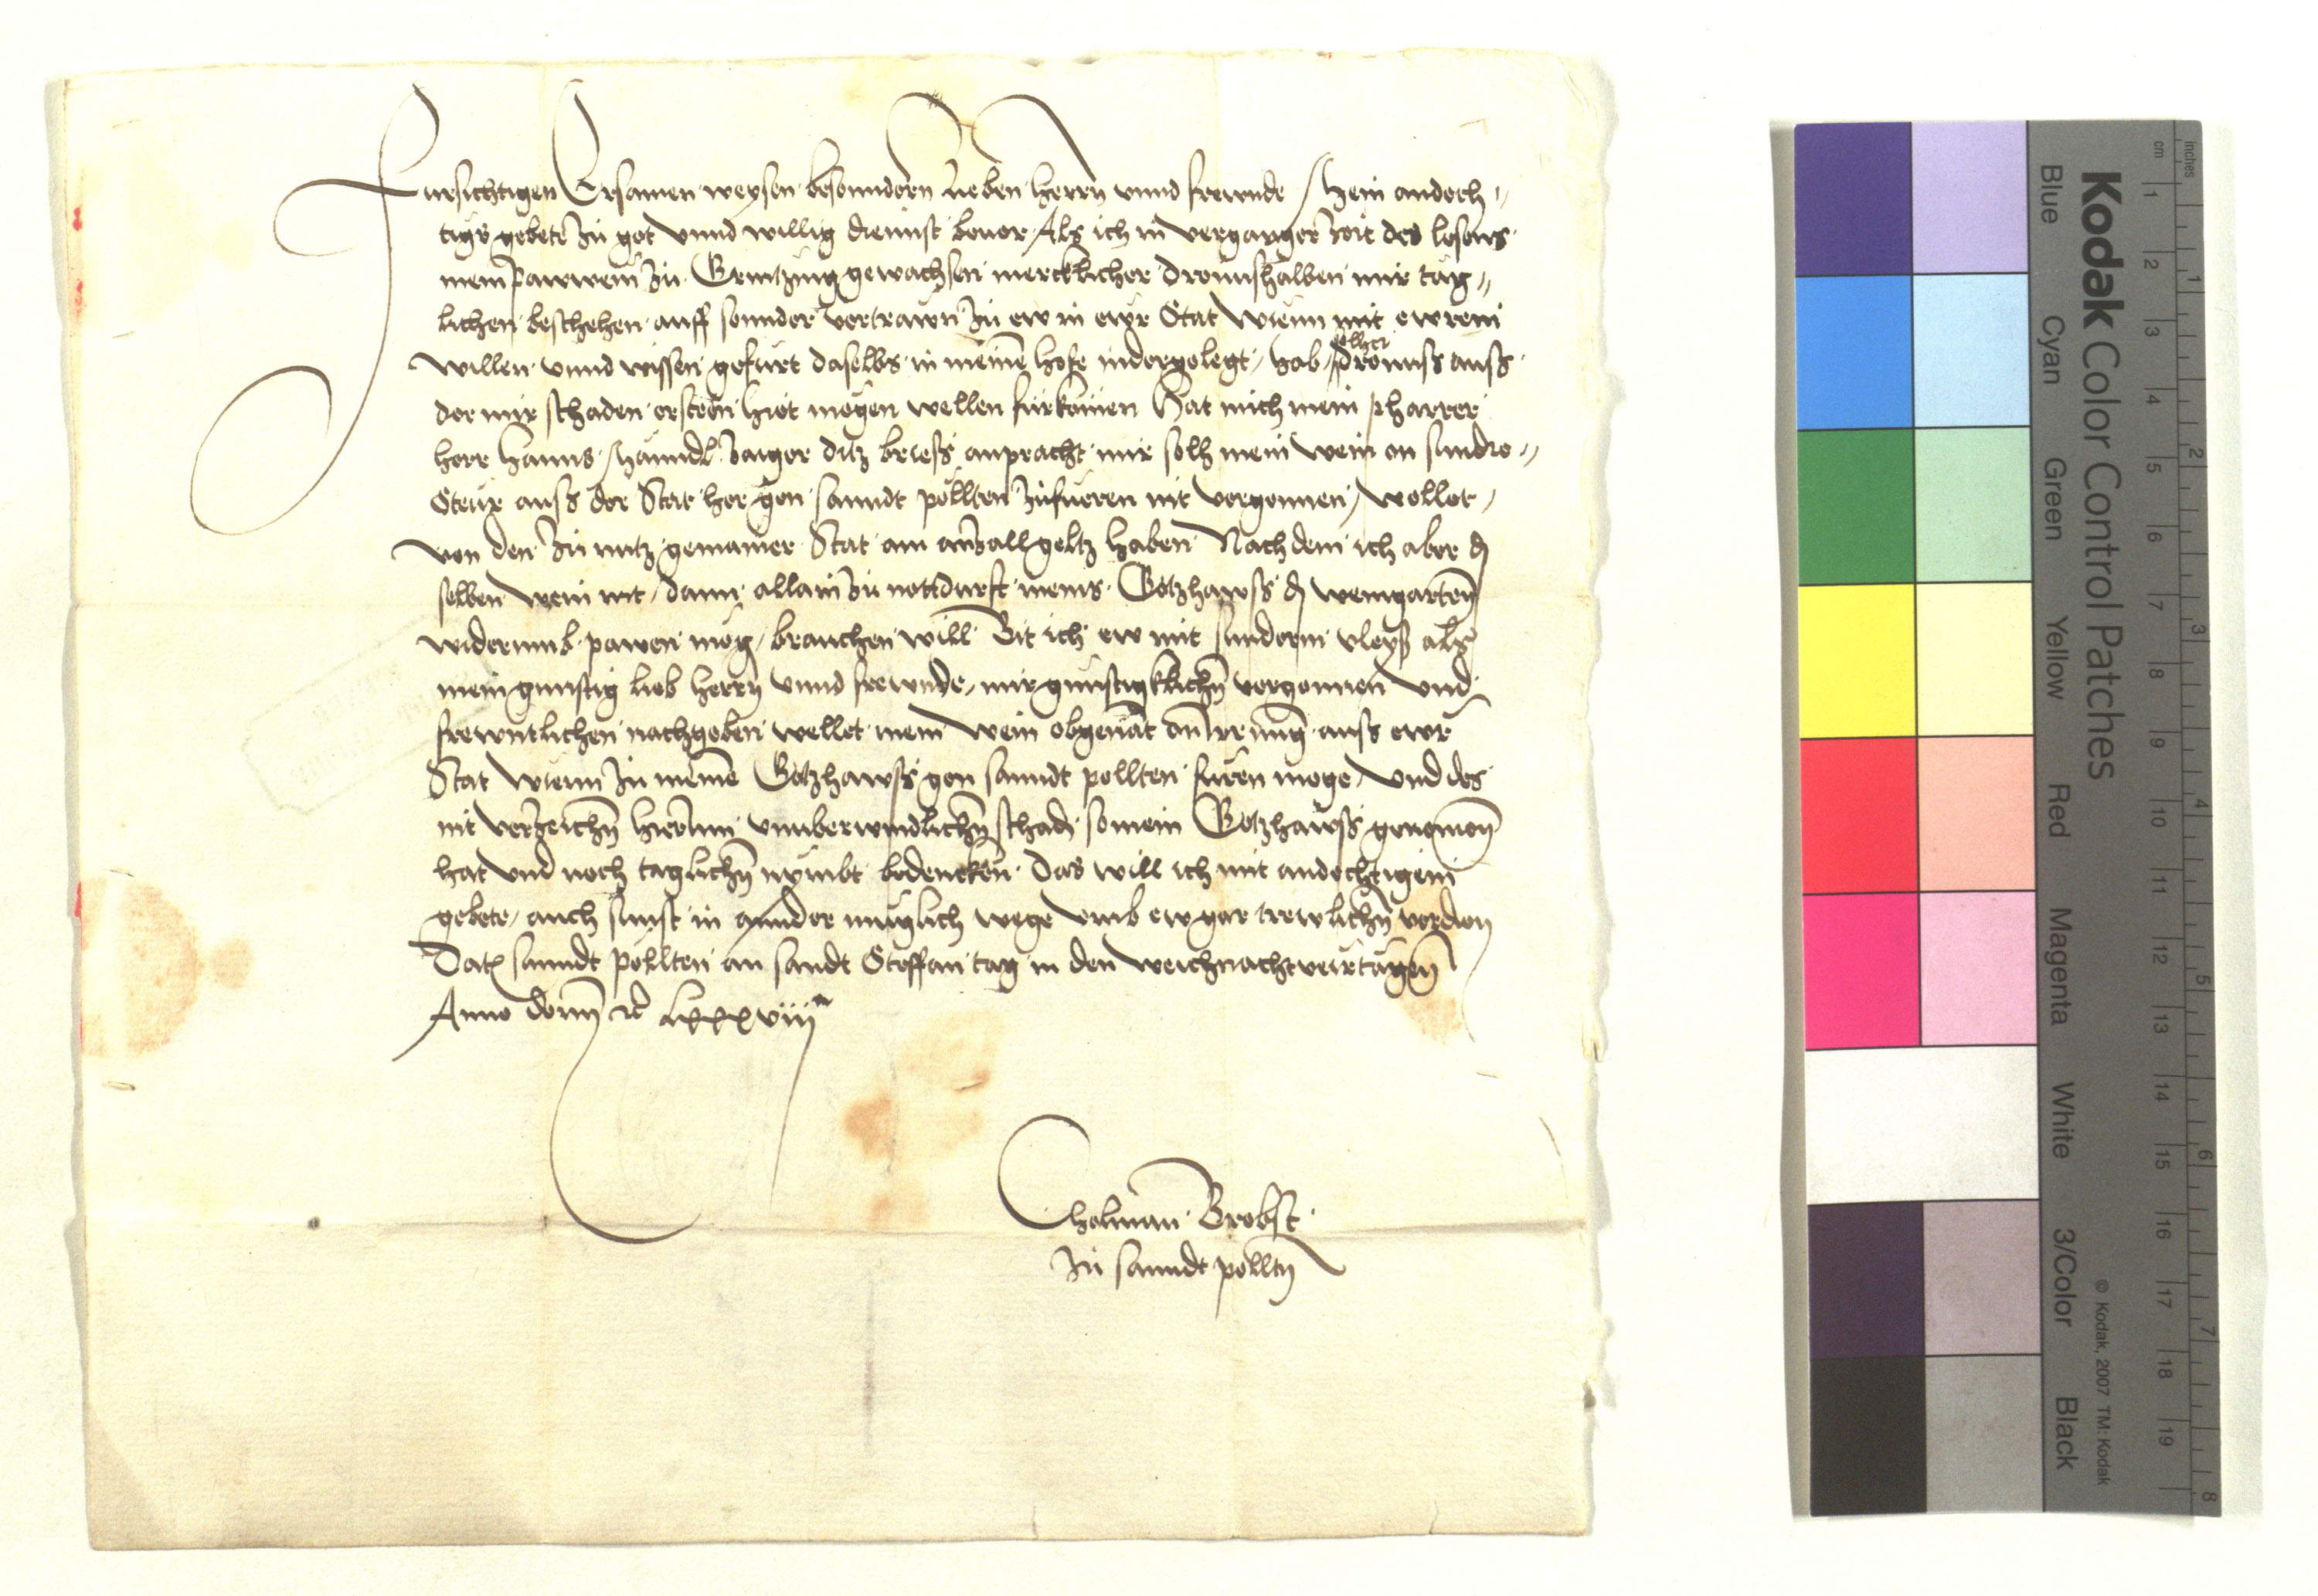 Fursichtigen Ersamen weysen besonndern lieben herrn vnnd frewnde Mein andech„
tigs gebete zu got vnnd willig diennst beuor Als ich in verganger zeit des lesens
mein pawwein zu Grintzing gewachsen mercklicher dronushalben mir täg„
lichen beschehen auff sonnder vertrawn zu ew in ewr Stat Wienn mit ewrem
willen vnnd wissen gefurt daselbs in meinē hofe nidergelegt hab solher dronuss auss
der mir schaden ersteen hiet mogen wellen furkōmen Hat mich mein pharrer
herr Hanns Männdl zaiger ditz briefs anpracht mir solh mein wein on sundre„
Steur auss der Stat her gen sanndt pöllten zufueren nit vergonnen wollet
von den zu nutz gemainer Stat am anzall geltz haben Nachdem ich aber d
selben wein nit dann allain zu notturfft meins Gotzhawss d weingarten
widerumb pawen mög brauchen will Bit ich ew mit sunderm vleys als
mein gunstig lieb herrn vnnd frewnde mir gunstigklichn vergonnen vnd
frewntlichen nachgeben wellet mein wein obgenāt on irrung auss ewr
Stat Wienn zu meinē Gotzhawss gen sanndt pöllten furen moge vnd des
nit verzeichn hierinn vnuberwindlichn schadn so mein Gotzhawss genomen
hat vnd noch taglichn nymbt bedencken Das will ich mit andechtigem
gebete auch sunst in annder muglich wege vmb ew gar trewlichn verdien
Dat sanndt pöllten an sandt Steffan tag in den weichnachtveirtägen
Anno domī rc lxxxviii
Cholman Brobst
zu sanndt pölltn
Kodak Color Control Patches
Blue Cyan Green Yellow Red Magenta White 3/Color Black
inches 1 2 3 4 5 6 7 8
cm 1 2 3 4 5 6 7 8 9 10 11 12 13 14 15 16 17 18 19
© Kodak, 2007 TM: Kodak